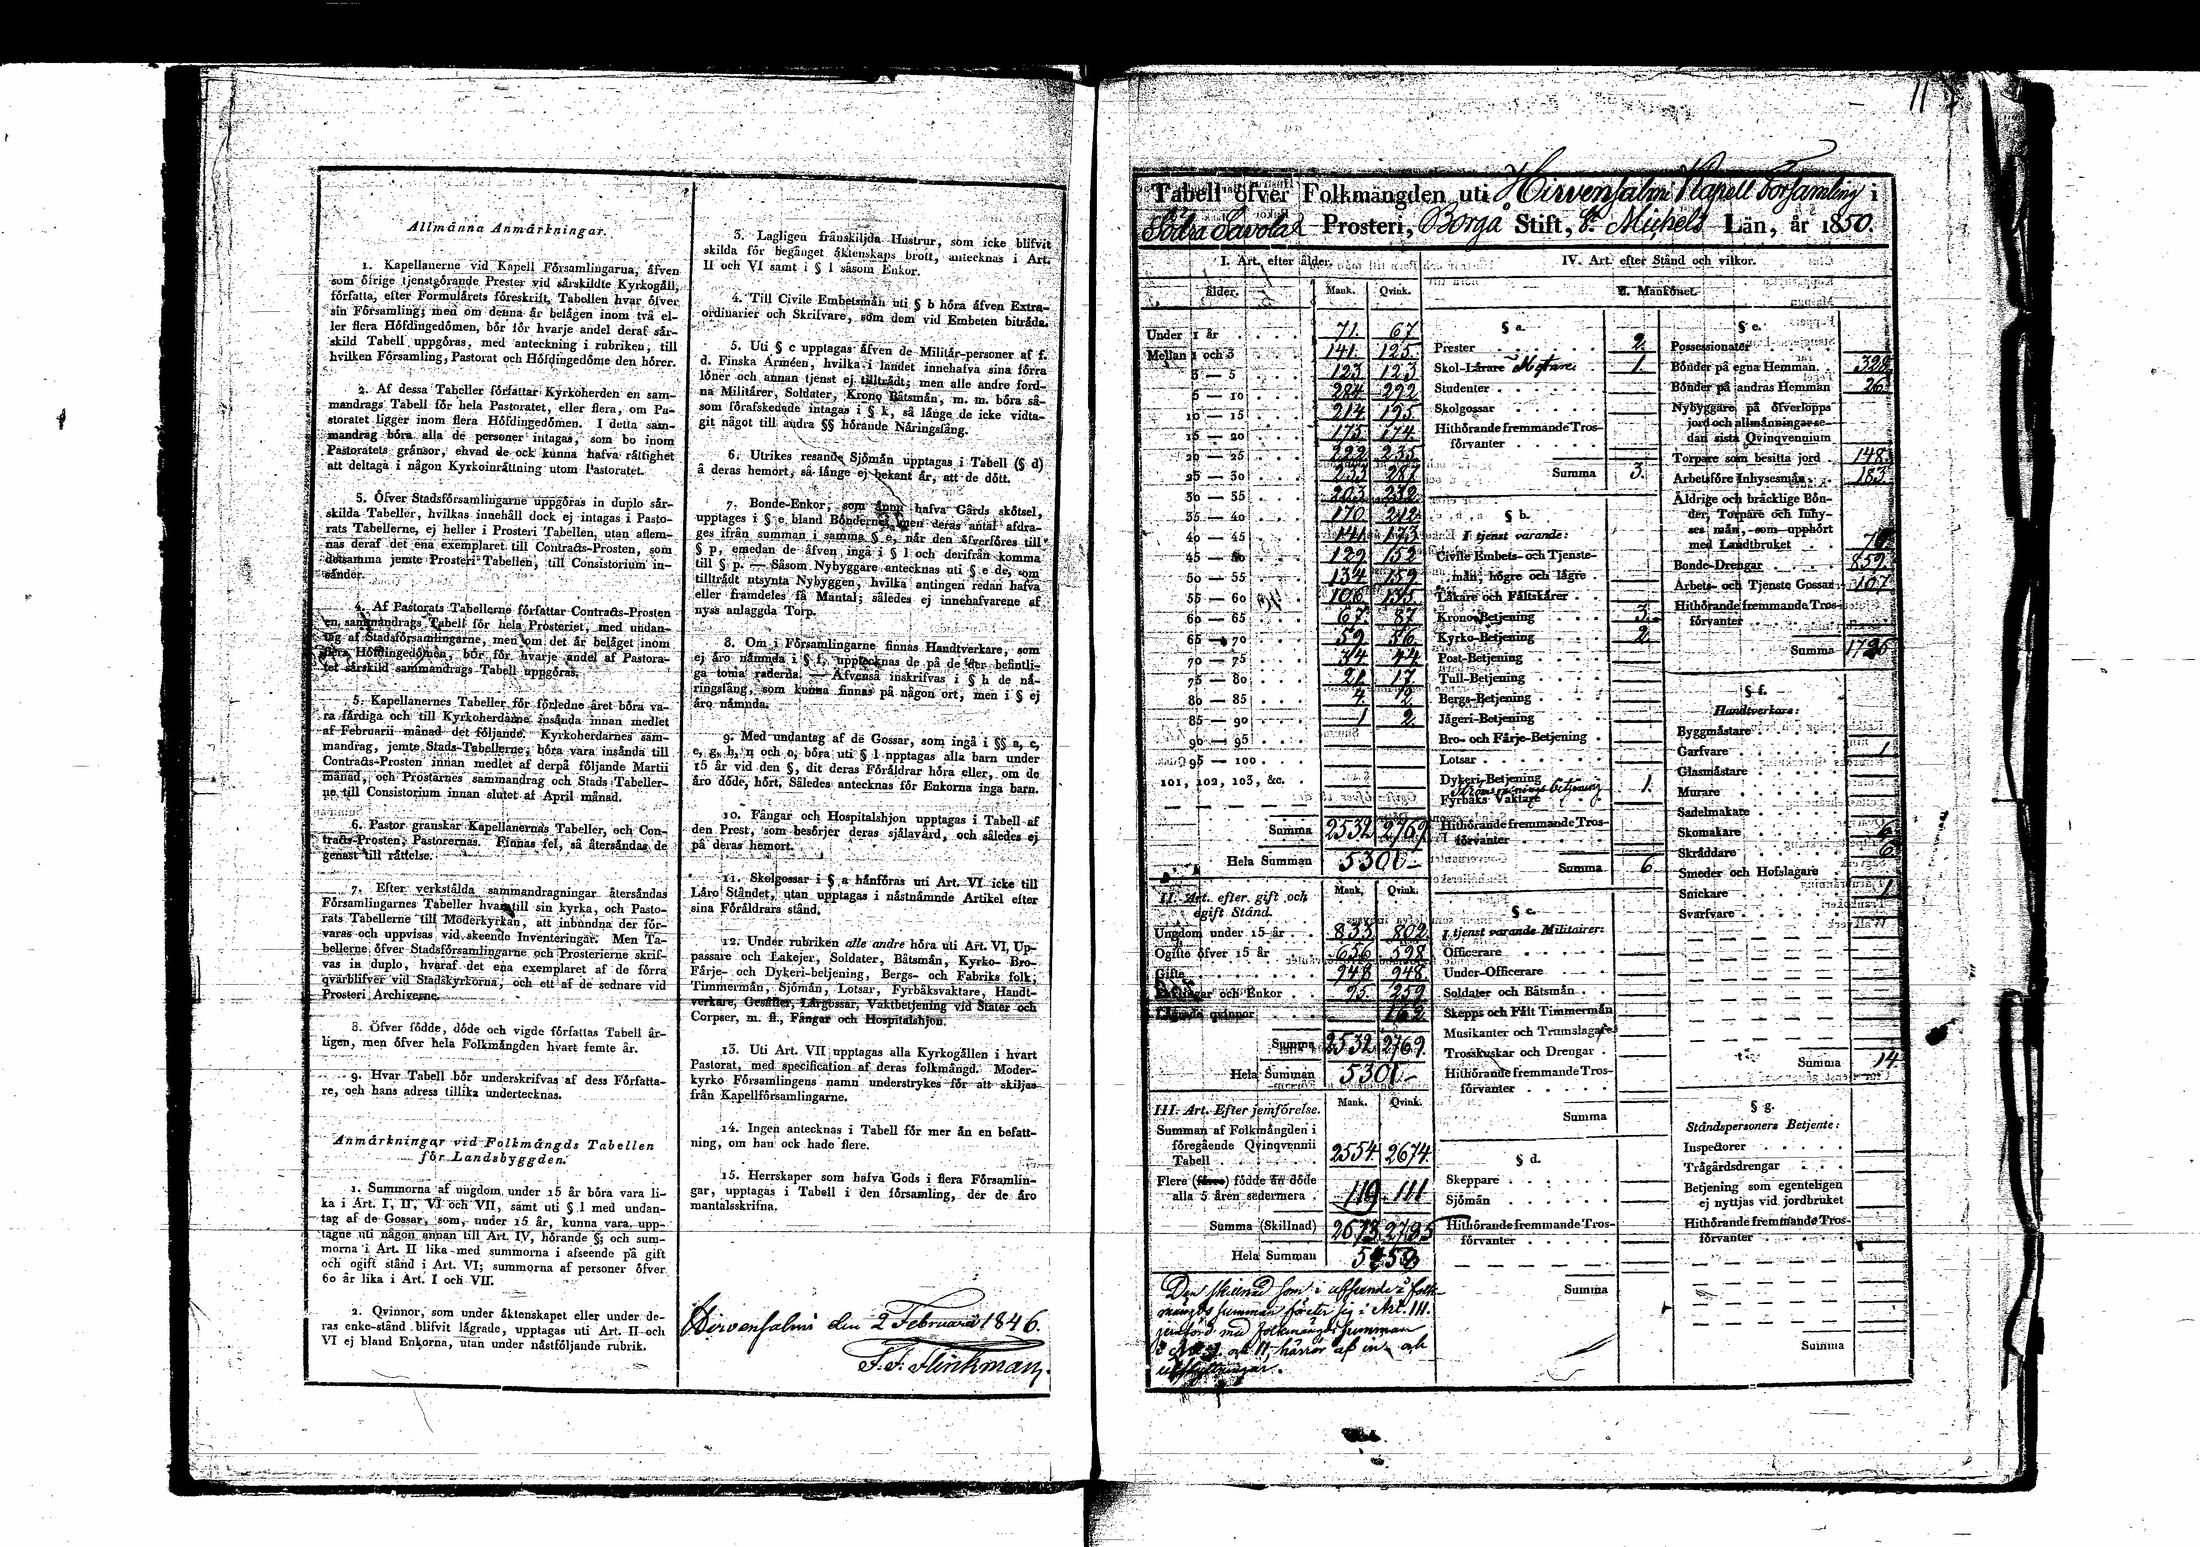 Allmänna Anmärkningar.
1. Kapellanerne vid Kapell Församlingarna, äfven
som öfrige tjenstgörande Prester vid särskildte Kyrkogäll,
författa, efter Formulärets föreskrift, Tabellen hvar öfver
sin Församling; men om denna är belägen inom två el-
ler flera Höfdingedömen, bör för hvarje andel deraf sär-
skild Tabell uppgöras, med anteckning i rubriken, till
hvilken Församling, Pastorat och Höfdingedöme den hörer.
2. Af dessa Tabeller författar Kyrkoherden en sam-
mandrags Tabell för hela Pastoratet, eller flera, om Pa-
storatet ligger inom flera Höfdingedömen. I detta sam-
mandrag böra alla de personer intagas, som bo inom
Pastoratets gränsor, ehvad de ock kunna hafva rättighet
att deltaga i någon Kyrkoinrättning utom Pastoratet.
3. Öfver Stadsförsamlingarne uppgöras in duplo sär-
skilda Tabeller, hvilkas innehåll dock ej intagas i Pasto-
rats Tabellerne, ej heller i Prosteri Tabellen, utan aflem-
nas deraf det ena exemplaret till Contracts-Prosten, som
detsamma jemte Prosteri Tabellen, till Consistorium in-
sänder.
4. Af Pastorats Tabellerne författar Contracts-Prosten
en sammandrags Tabell för hela Prosteriet, med undan-
tag af Stadsförsamlingarne, men om det är beläget inom
flera Höfdingedömen, bör för hvarje andel af Pastora-
tet särskild sammandrags Tabell uppgöras.
5. Kapellanernes Tabeller för förledne året böra va-
ra färdiga och till Kyrkoherdarne insända innan medlet
af Februarii månad det följande. Kyrkoherdarnes sam-
mandrag, jemte Stads-Tabellerne, böra vara insända till
Contracts-Prosten innan medlet af derpå följande Martii
månad, och Prostarnes sammandrag och Stads Tabeller-
ne till Consistorium innan slutet af April månad.
6. Pastor granskar Kapellanernas Tabeller, och Con-
tracts-Prosten, Pastorernas. Finnas fel, så återsändas de
genast till rättelse.
7. Efter verkstälda sammandragningar återsändas
Församlingarnes Tabeller hvar till sin kyrka, och Pasto-
rats Tabellerne till Moderkyrkan, att inbundna der för-
varas och uppvisas vid skeende Inventeringar. Men Ta-
bellerne öfver Stadsförsamlingarne och Prosterierne skrif-
vas in duplo, hvaraf det ena exemplaret af de förra
qvarblifver vid Stadskyrkorna, och ett af de sednare vid
Prosteri Archiverne.
8. Öfver födde, döde och vigde författas Tabell år-
ligen, men öfver hela Folkmängden hvart femte år.
9. Hvar Tabell bör underskrifvas af dess Författa-
re, och hans adress tillika undertecknas.
Anmärkningar vid Folkmängds Tabellen
för Landsbyggden.
1. Summorna af ungdom under 15 år böra vara li-
ka i Art. I, II, VI och VII, samt uti § l med undan-
tag af de Gossar, som, under 15 år, kunna vara upp-
tagne uti någon annan till Art. IV, hörande §; och sum-
morna i Art. II lika med summorna i afseende på gift
och ogift stånd i Art. VI; summorna af personer öfver
60 år lika i Art. I och VII.
2. Qvinnor, som under äktenskapet eller under de-
ras enke-stånd blifvit lägrade, upptagas uti Art. II och
VI ej bland Enkorna, utan under nästföljande rubrik.
3. Lagligen frånskiljda Hustrur, som icke blifvit
skilda för begånget äktenskaps brott, antecknas i Art.
II och VI samt i § l såsom Enkor.
4. Till Civile Embetsmän uti § b höra äfven Extra-
ordinarier och Skrifvare, som dem vid Embeten biträda.
5. Uti § c upptagas äfven de Militär-personer af f.
d. Finska Arméen, hvilka i landet innehafva sina förra
löner och annan tjenst ej tillträdt; men alle andre ford-
na Militärer, Soldater, Krono Båtsmän, m. m. böra så-
som förafskedade intagas i § k, så länge de icke vidta-
git något till andra §§ hörande Näringsfång.
6. Utrikes resande Sjömän upptagas i Tabell (§ d)
å deras hemort, så länge ej bekant är, att de dött.
7. Bonde-Enkor, som ännu hafva Gårds skötsel,
upptages i § e bland Bönderne, men deras antal afdra-
ges ifrån summan i samma § e, när den öfverföres till
§ p, emedan de äfven ingå i § l och derifrån komma
till § p. — Såsom Nybyggare antecknas uti § e de, som
tillträdt utsynta Nybyggen, hvilka antingen redan hafva
eller framdeles få Mantal; således ej innehafvarene af
nyss anlaggda Torp.
8. Om i Församlingarne finnas Handtverkare, som
ej äro nämnda i § f, upptecknas de på de der befintli-
ga toma raderna. — Äfvenså inskrifvas i § h de nä-
ringsfång, som kunna finnas på någon ort, men i § ej
äro nämnda.
9. Med undantag af de Gossar, som ingå i §§ a, c,
e, g, h, n och o, böra uti § l upptagas alla barn under
15 år vid den §, dit deras Föräldrar höra eller, om de
äro döde, hört. Således antecknas för Enkorna inga barn.
10. Fångar och Hospitalshjon upptagas i Tabell af
den Prest, som besörjer deras själavård, och således ej
på deras hemort.
11. Skolgossar i § a hänföras uti Art. VI icke till
Läro Ståndet, utan upptagas i nästnämnde Artikel efter
sina Föräldrars stånd.
12. Under rubriken alle andre höra uti Art. VI, Up-
passare och Lakejer, Soldater, Båtsmän, Kyrko- Bro-
Färje- och Dykeri-betjening, Bergs- och Fabriks folk,
Timmermän, Sjömän, Lotsar, Fyrbåksvaktare, Handt-
verkare, Gesäller, Lärgossar, Vaktbetjening vid Stater och
Corpser, m. fl., Fångar och Hospitalshjon.
13. Uti Art. VII upptagas alla Kyrkogällen i hvart
Pastorat, med specification af deras folkmängd. Moder-
kyrko Församlingens namn understrykes för att skiljas
från Kapellförsamlingarne.
14. Ingen antecknas i Tabell för mer än en befatt-
ning, om han ock hade flere.
15. Herrskaper som hafva Gods i flera Församlin-
gar, upptagas i Tabell i den församling, der de äro
mantalsskrifna.
Hirvensalmi den 2 Februarii 1846.
F. F. Flinkman.
11
Tabell öfver Folkmängden uti Hirvensalmi Kapell Församling i
Södra Savolax Prosteri, Borgå Stift, St. Michels Län, år 1850.
I. Art. efter ålder.
ålder. Mank. Qvink.
Under 1 år 71. 67
Mellan 1 och 3 141. 125.
3 — 5 123 123
5 — 10 284 292
10 — 15 214 195
15 — 20 175. 174.
20 — 25 222 235
25 — 30 233 281
30 — 35 203 232
35 — 40 170 212
40 — 45 141 173
45 — 50 129 152
50 — 55 134 159
55 — 60 106 135
60 — 65 67. 87
65 — 70 59 56
70 — 75 34 44
75 — 80 21 17
80 — 85 4. 12
85 — 90 1 2
90 — 95
95 — 100
101, 102, 103, &c.
Summa 2532 2769
Hela Summan 5301
II. Art. efter gift och
ogift Stånd. Mank. Qvink.
Ungdom under 15 år 833 802
Ogifte öfver 15 år 656 598
Gifte 948 948
Enklingar och Enkor 95. 259
Lägrade qvinnor 162
Summa 2532 2769.
Hela Summan 5301
III. Art. Efter jemförelse. Mank. Qvink.
Summan af Folkmängden i
föregående Qvinqvennii
Tabell 2554 2674
Flere (färre) födde än döde
alla 5 åren sedermera 119 111
Summa (Skillnad) 2673 2785
Hela Summan 5458
Den skillnad som i afseende å folk-
mängds summan företer sig i Art. III.
jemförd med folkmängds summan
i Art. I och II, härrör af in- och
utflyttningar.
IV. Art. efter Stånd och vilkor.
Mankönet.
§ a.
Prester 2.
Skol-Lärare 1.
Studenter
Skolgossar
Hithörande fremmande Tros-
förvanter
Summa 3.
§ b.
I tjenst varande:
Civile Embets- och Tjenste-
män, högre och lägre
Läkare och Fältskärer
Krono-Betjening 3.
Kyrko-Betjening 2
Post-Betjening
Tull-Betjening
Bergs-Betjening
Jägeri-Betjening
Bro- och Färje-Betjening
Lotsar
Dykeri-Betjening
betjening 1.
Fyrbåks Vaktare
Hithörande fremmande Tros-
förvanter
Summa 6
§ c.
I tjenst varande Militairer:
Officerare
Under-Officerare
Soldater och Båtsmän
Skepps och Fält Timmermän
Musikanter och Trumslagare
Trosskuskar och Drengar
Hithörande fremmande Tros-
förvanter
Summa
§ d.
Skeppare
Sjömän
Hithörande fremmande Tros-
förvanter
Summa
§ e.
Possessionater
Bönder på egna Hemman 328
Bönder på andras Hemman 26
Nybyggare på öfverlopps
jord och allmänningar se-
dan sista Qvinqvennium
Torpare som besitta jord 148
Arbetsföre Inhysesmän 183
Åldrige och bräcklige Bön-
der, Torpare och Inhy-
ses män, som upphört
med Landtbruket
Bonde-Drengar 859
Arbets- och Tjenste Gossar 107
Hithörande fremmande Tros-
förvanter
Summa
§ f.
Handtverkare:
Byggmästare
Garfvare 1
Glasmästare
Murare
Sadelmakare
Skomakare 6
Skräddare 6
Smeder och Hofslagare
Snickare 1
Svarfvare
Summa 14.
§ g.
Ståndspersoners Betjente:
Inspectorer
Trägårdsdrengar
Betjening som egenteligen
ej nyttjas vid jordbruket
Hithörande fremmande Tros-
förvanter
Summa